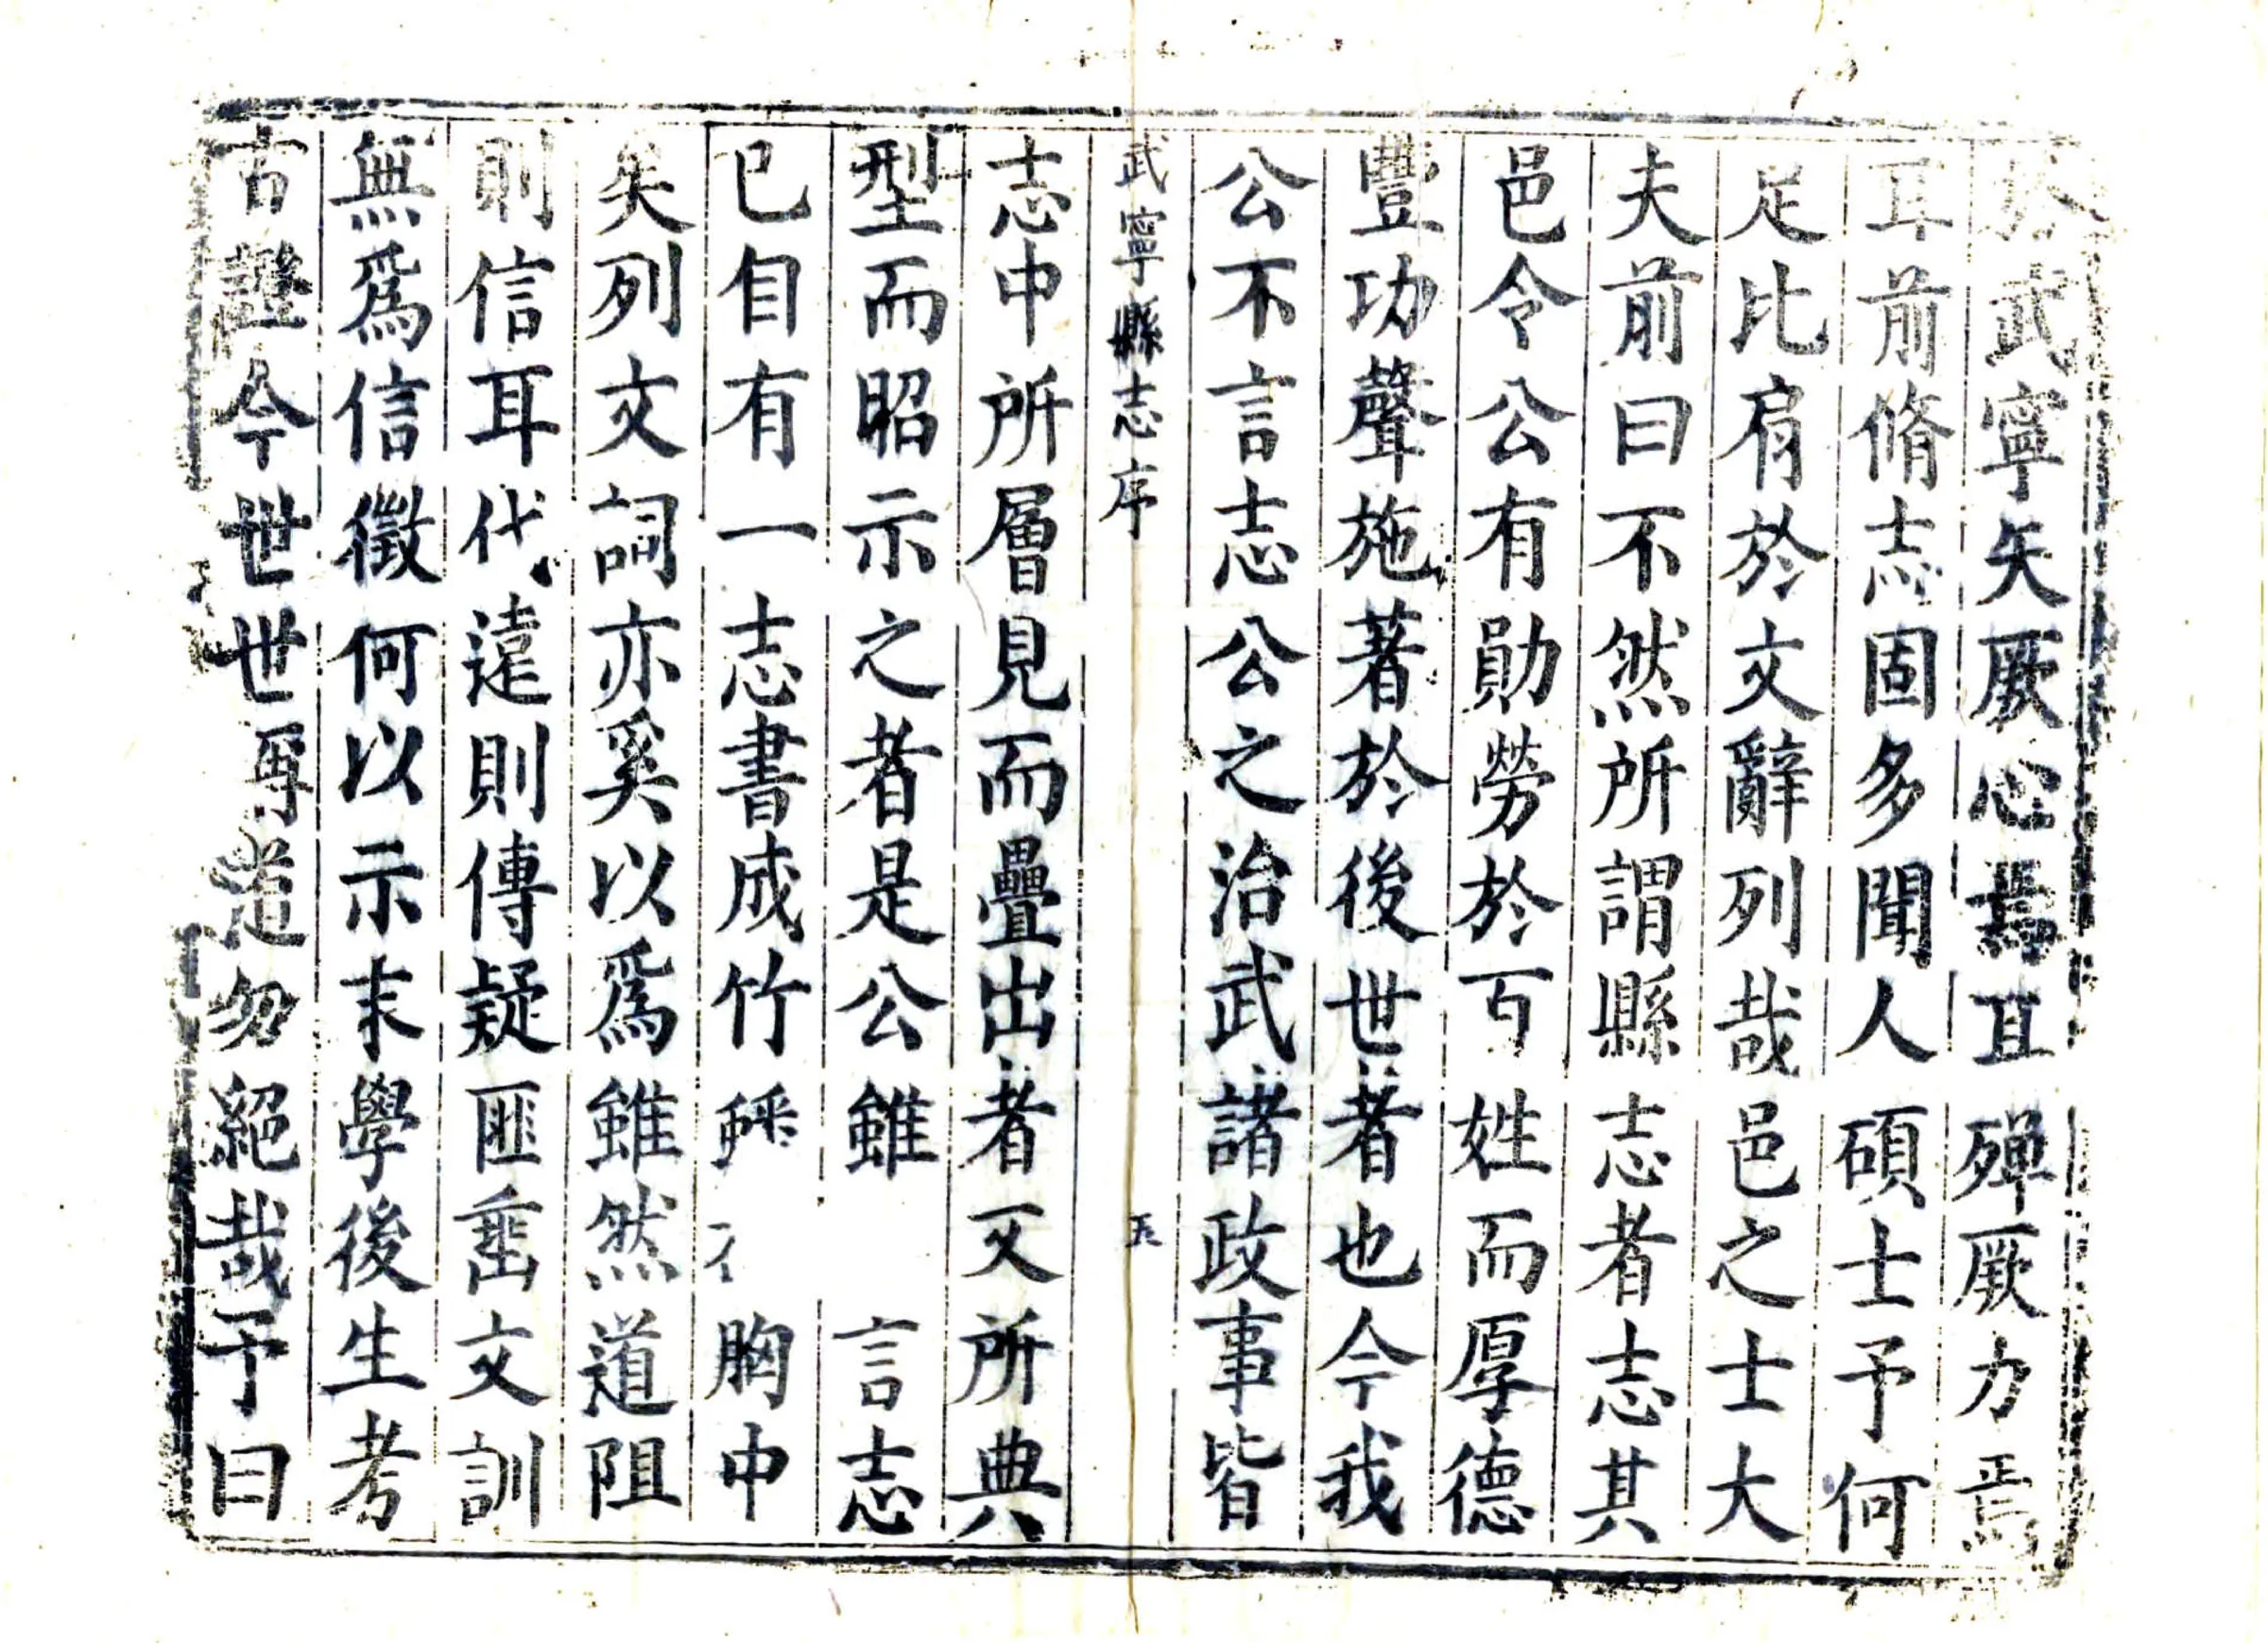 於武寧矢厥心焉耳殫厥力焉
耳前脩志固多聞人碩士予何
足比肩於文辭列哉邑之士大
夫前曰不然所謂縣志者志其
邑令公有勛勞於百姓而厚德
豐功聲施著於後世者也今我
公不言志公之治武諸政事皆
武寧縣志序
五
志中所層見而疊出者又所典
型而昭示之者是公雖言志
已自有一志書成竹胸中
矣列文詞亦奚以爲雖然道阻
則信耳代遠則傳疑匪耑文訓
無爲信徵何以示末學後生考
古證今世世尊道勿絕哉予曰